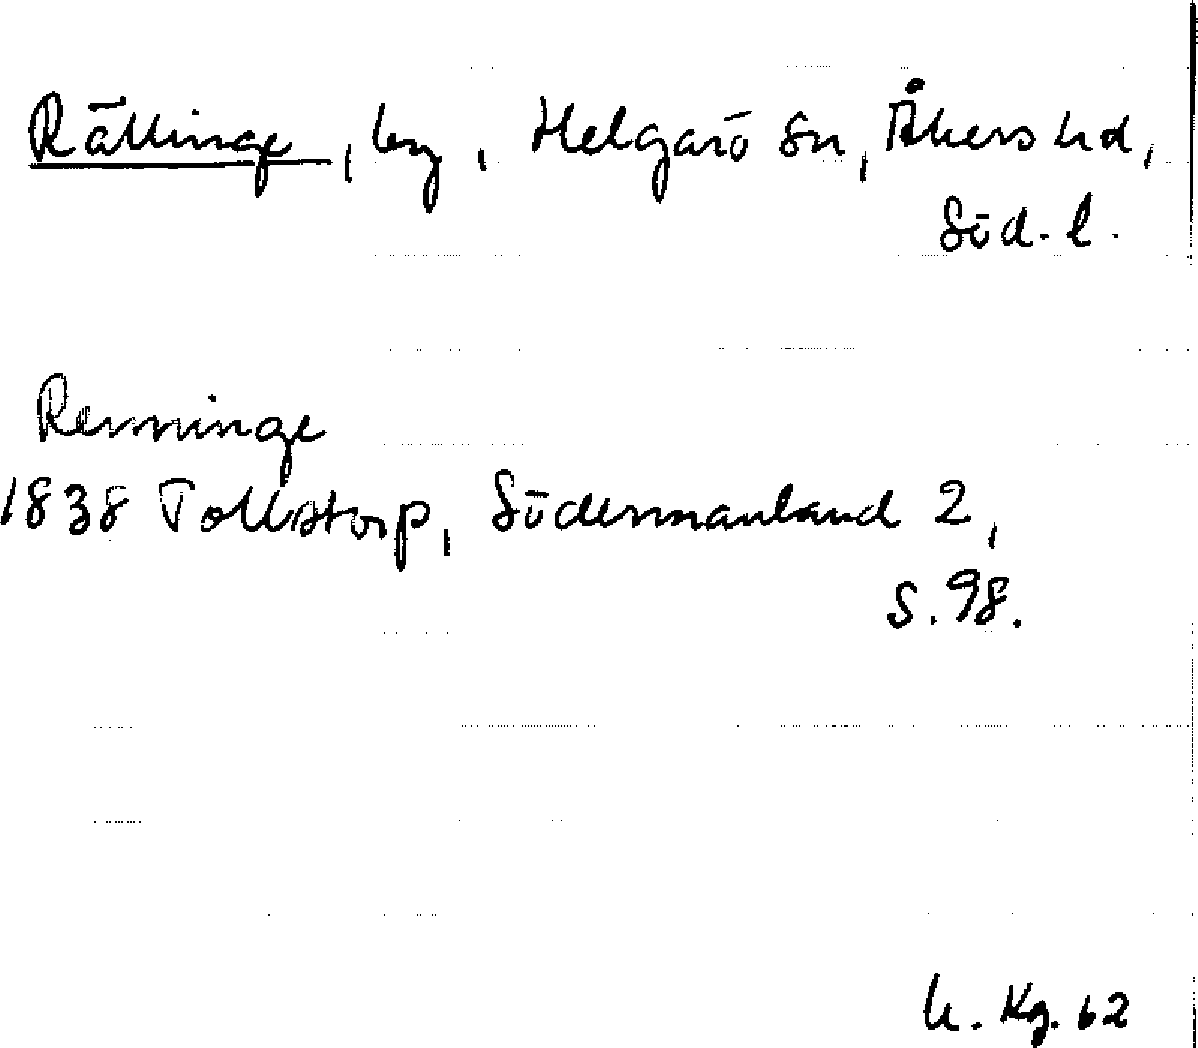 Rällinge, by, Helgarö sn, Åkers hd,
Söd. l.
Renninge
1838 Tollstorp, Södermanland 2,
s. 98.
U. Kg. 62